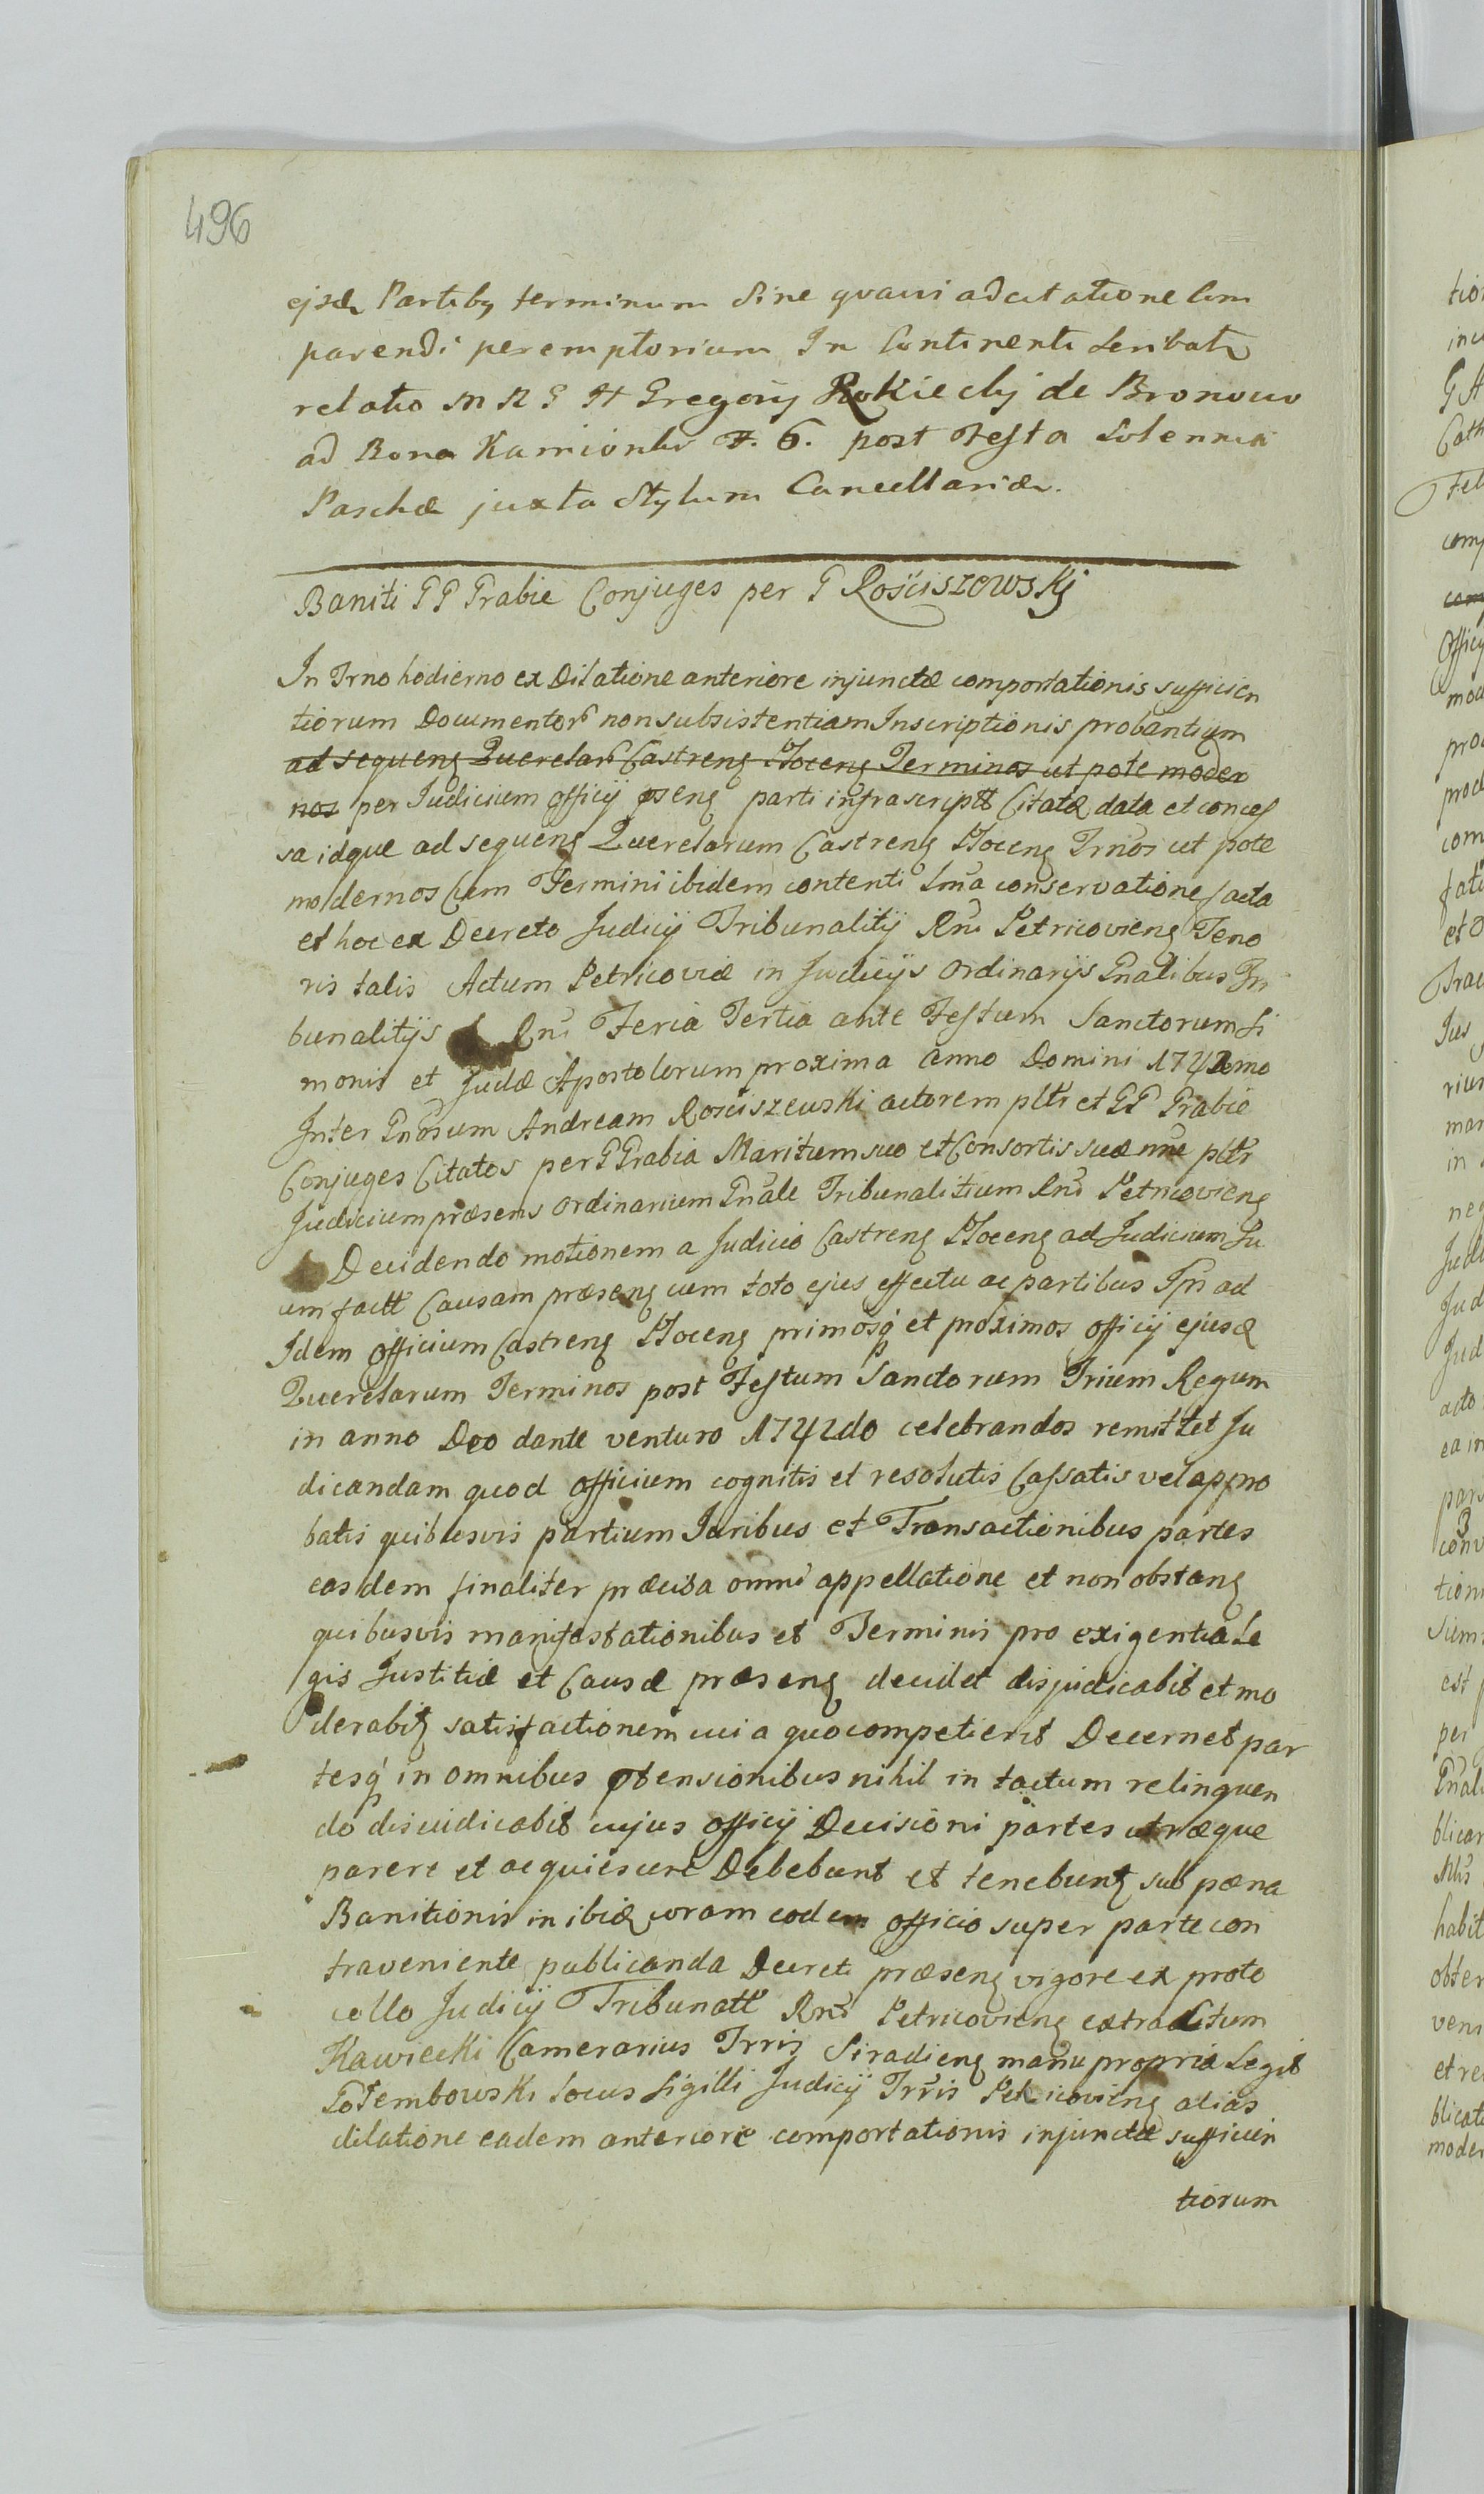 496
ejsdę Partibq terminum Sine quavi adcitatione Com
parendi peremptorium In Continenti Scribatr
relatio M R G H Gregorij Rokicckij de Bronowo
ad Bona Kamionki F. 6. post Festa Solennia
Paschæ juxta Stylum Cancellariæ.
Baniti GG Grabie Conjuges per G Rościszowskj
In Trno hodierno ex Dilatione anteriore injunctæ comportationis sufficien
tiorum Documentor non subsistentiam Inscriptionis probantium
ad sequenç Querelar Castrenç Plocenç Terminos ut pote moder
nos per Judicium officij psenç parti infrascriptt Citatæ data et conces
sa idque ad sequenç Querelarum Castrenç Plocenç Trnos ut pote
modernos Cum Termini ibidem contenti Sma conservatione facta
et hoc ex Decreto Judicij Tribunalitij Rni Petricovienç Teno
ris talis Actum Petricoviæ in Judicijs Ordinarijs Gnalibus Tri
bunalitijs Rni Feria Tertia ante Festum Sanctorum Si
monis et Judæ Apostolorum proxima Anno Domini 1742mo
Inter Gnosum Andream Rosciszewski actorem pltr et GG Grabie
Conjuges Citatos per G Grabia Maritum suo et Consortis suæ nne pltr
Judicium præsens ordinarium Gnale Tribunalitium Rni Petricovienç
Decidendo motionem a Judicio Castrenç Plocenç ad Judicium Su
um factt Causam præsenç cum toto ejus effectu ac partibus Ipis ad
Idem officium Castrenç Plocenç primosq et proximos officij ejusdæ
Querelarum Terminos post Festum Sanctorum Trium Regum
in anno Deo dante venturo 1742do celebrandos remittet Ju
dicandam quod officium cognitis et resolutis Cassatis vel appro
batis quibusvis partium Juribus et Transactionibus partes
easdem finaliter præcisa omni appellatione et non obstanç
quibusvis manifestationibus et Terminis pro exigentia Le
gis Justitiæ et Causæ præsenç decidet disjudicabit et mo
derabitç satisfactionem cui a quo competierit Decernet par
tesq in omnibus ptensionibus nihil in tactum relinquen
do disjudicabit cujus officij Decisioni partes utræque
parere et acquiescere Debebunt et tenebuntç sub pæna
Banitionis in ibidæ coram eodem officio super parte con
traveniente publicanda Decreti præsenç vigore ex proto
collo Judicij Tribunatt Rni Petricovienç extraditum
Kawiecki Camerarius Trris Siradienç manu propria Legit
Gotembowski Locus Sigilli Judicij Trris Petricovienç alias
dilatione eadem anteriore comportationis injunctæ sufficien
tiorum